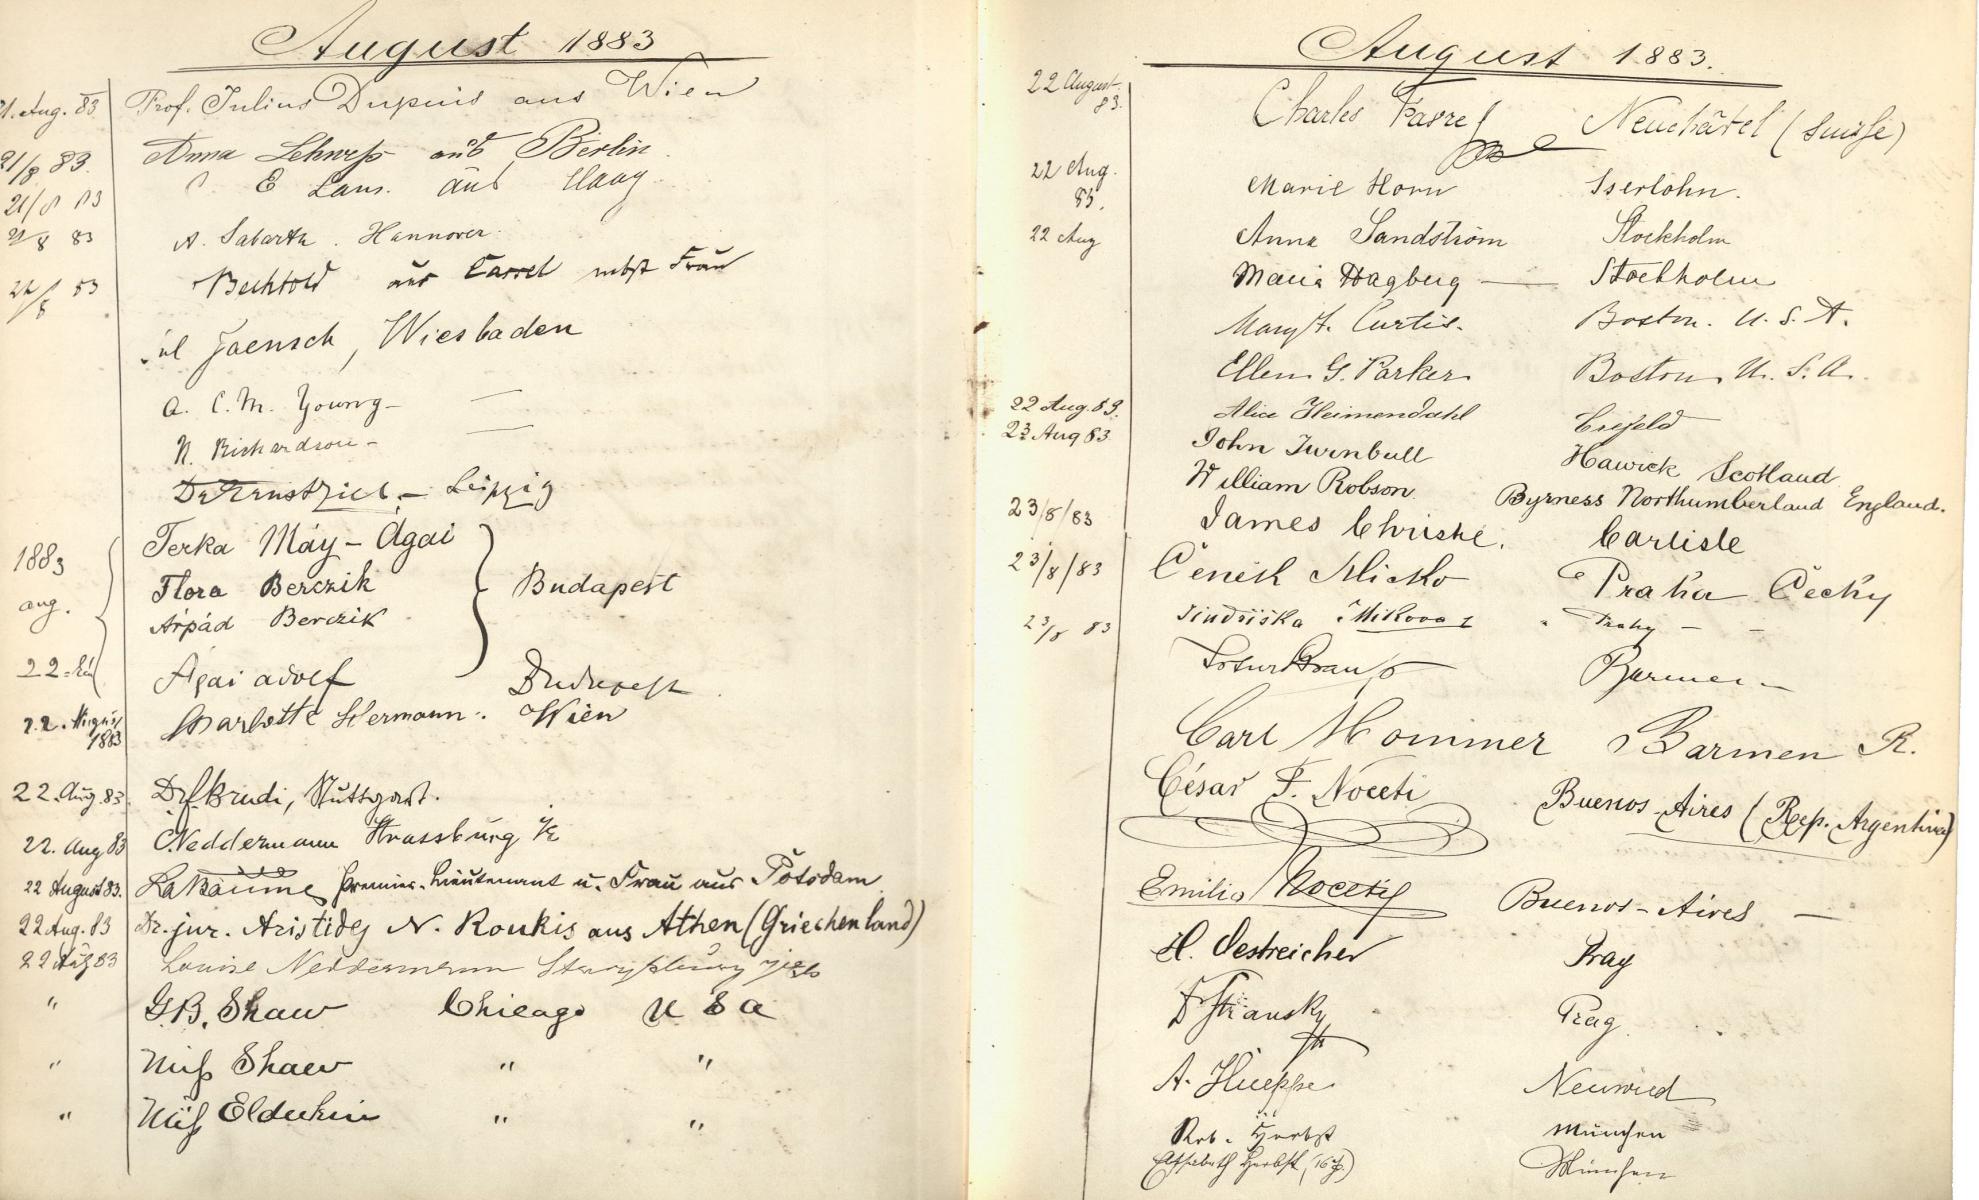 August 1883
21. Aug. 83 Prof. Julius Dupuis aus Wien
21/8 83. Anna aus Berlin
21/8 83 E Laur. aus Haag
21/8 83 A. Sabarth. Hannover.
22/8 83 Bechtold aus Cassel nebst Frau
Jaensch, Wiesbaden
A. C. M. Young —
N. Richardson —
Dr Ernst Ziel. — Leipzig
1883 Terka Máy-Agai
aug. Flora Berczik Budapest
Árpád Berczik
22-én Agai Adolf Budapest
22. August 1883 Charlotte Hermann. Wien
22. Aug. 83. Dr Brudi, Stuttgart.
22. Aug 83 Neddermann Strassburg i/E
22 August 83. La Baume Premier-Lieutenant u. Frau aus Potsdam
22 Aug. 83 Dr. jur. Aristides N. Roukis aus Athen (Griechenland)
22 Aug 83 Louise Neddermann Strassburg
" G. B. Shaw Chicago U S A
" Miss Shaw " "
" Miss " "
August 1883.
22 August 83. Charles Favre Neuchâtel (Suisse)
22 Aug. 83. Marie Horn Iserlohn.
22 Aug Anna Sandström Stockholm
Maria Hagberg — Stockholm
Mary F. Curtis. Boston. U. S. A.
Ellen G. Parker Boston U. S. A.
22 Aug. 83. Alice Heimendahl Crefeld
23 Aug 83 John Turnbull Hawick Scotland
William Robson. Byrness Northumberland England.
23/8/83 James Christie. Carlisle
23/8/83 Čeněk Praha Čechy
23/8 83 Jindřiška " Prahy — —
Braus Barmen
Carl Hommer Barmen R.
César F. Noceti Buenos-Aires (Rep. Argentina)
Emilio Noceti Buenos-Aires —
H. Oestreicher Prag
Stransky Prag.
A. Hueppe. Neuwied
Rob. Herbst München
Elisabeth Herbst (16 J.) München